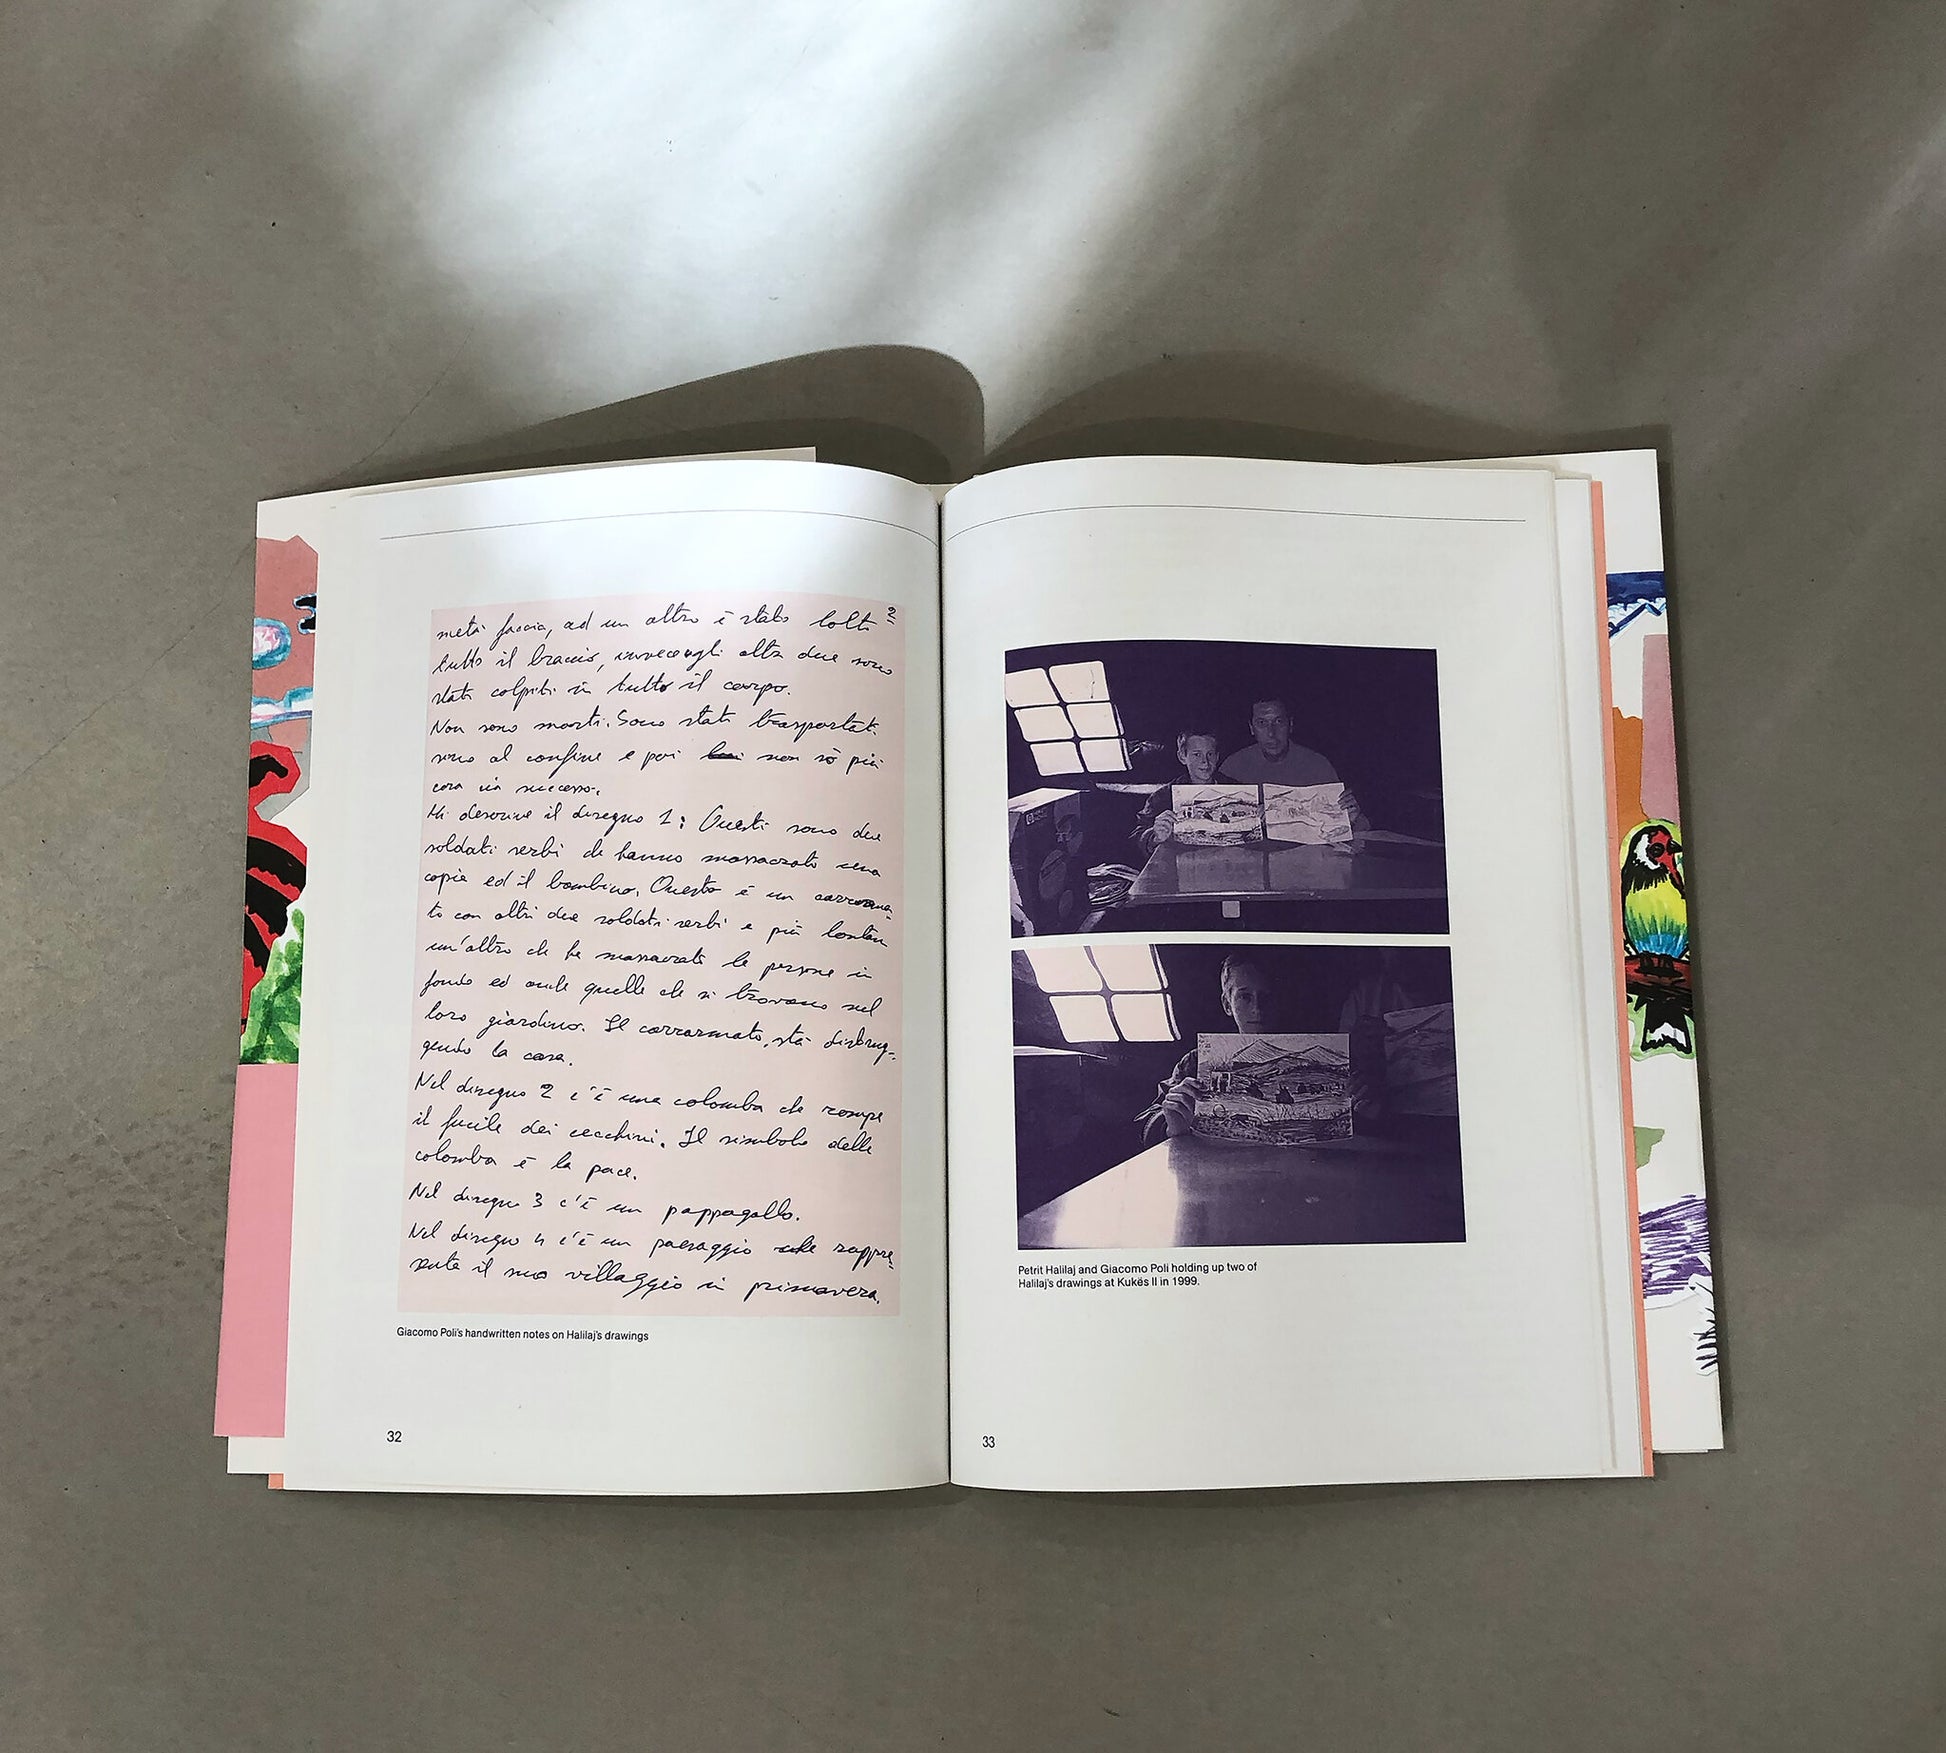 2
metà faccia, ad un altro è stato tolti
tutto il braccio, invece agli altri due sono
stati colpiti in tutto il corpo.
Non sono morti. Sono stati trasportati
sino al confine e poi non sò più
cosa sia successo.
Mi descrive il disegno 1: Questi sono due
soldati serbi che hanno massacrato una
copia ed il bambino. Questo è un carroarma-
to con altri due soldati serbi e più lontan
un'altro che ha massacrato le persone in
fondo ed anche quelle che si trovano nel
loro giardino. Il carroarmato, sta distrug-
gendo la casa.
Nel disegno 2 c'è una colomba che rompe
il fucile dei cecchini. Il simbolo della
colomba è la pace.
Nel disegno 3 c'è un pappagallo.
Nel disegno 4 c'è un paesaggio che rappre-
senta il suo villaggio in primavera.
Giacomo Poli's handwritten notes on Halilaj's drawings
32
Petrit Halilaj and Giacomo Poli holding up two of
Halilaj's drawings at Kukës II in 1999.
33